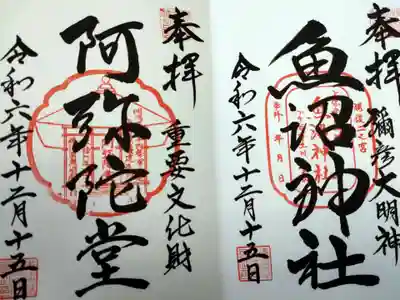 奉拝
彌彦大明神
魚沼神社
令和六年十二月十五日
奉拝
重要文化財
阿弥陀堂
令和六年十二月十五日